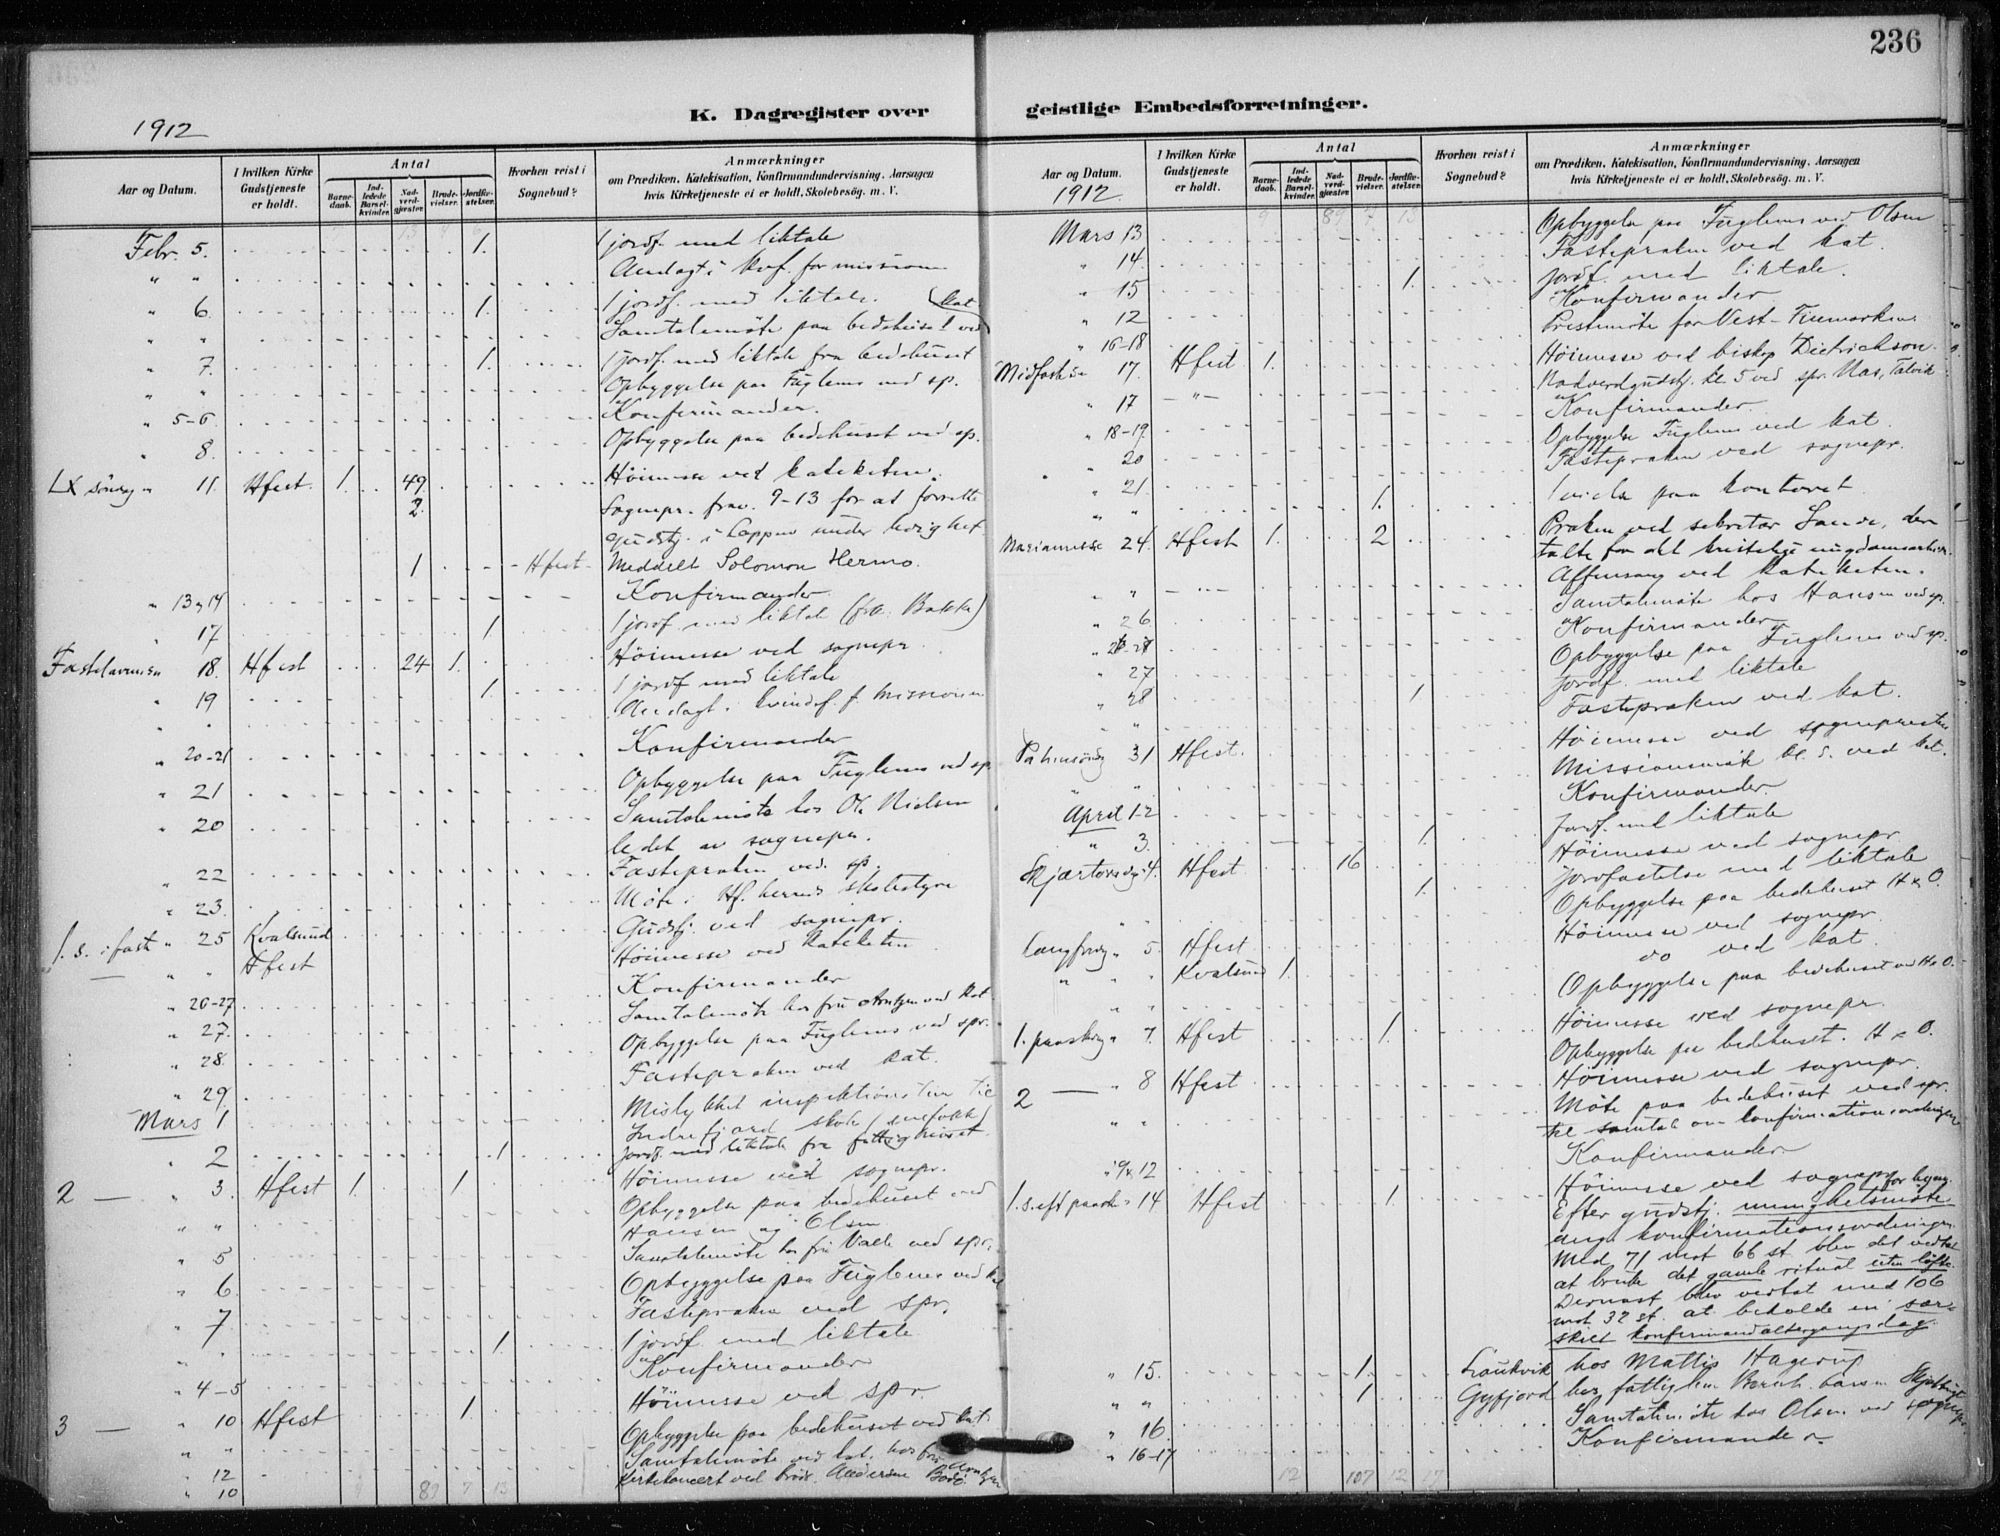 236
K. Dagregister over geistlige Embedsforretninger.
1912
Aar og Datum.
I hvilken Kirke Gudstjeneste er holdt.
Antal
Barnedaab.
Indledede Barselkvinder.
Nadverdgjæster.
Brudevielser.
Jordfæstelser.
Hvorhen reist i Sognebud?
Anmærkninger
om Prædiken, Katekisation, Konfirmandundervisning, Aarsagen
hvis Kirketjeneste ei er holdt, Skolebesög. m. V.
Febr. 5. 1. 1 jordf. med liktale
" " Andagt i kvf. for missionen
" 6. 1. 1 jordf. med liktale.
" " Samtalemöte paa bedehuset ved kat
" 7. 1. 1 jordf. med liktale fra bedehuset
" " Opbyggelse paa Fuglenes ved sp.
" 5-6 Konfirmander.
" 8. Opbyggelse paa bedehuset ved sp.
LX söndag " 11. Hfest. 1. 49 Höimesse ved kateketen.
2. Sognepr. frav. 9-13 for at forrette
gudstj. i Loppen under ledighet.
1 Hfest Meddelt Solomon Hermo.
" 13 og 14 Konfirmander
" 17 1 1 jordf. med liktale (fra Bakken)
Fastelavnssön 18. Hfest 24 1. Höimesse ved sognepr.
" 19 1. 1 jordf med liktale
" Andagt i kvindef. f. missionen
" 20-21 Konfirmander
" 21 Opbyggelse paa Fuglenes ved sp.
" 20 Samtalemöte hos O. Nielsen
ledet av sognepr.
" 22 Fastepræken ved sp.
" 23. Möte i Hf. herreds skolestyre
1. s. i faste " 25 Kvalsund Gudstj. ved sognepr.
— " " Hfest Höimesse ved kateketen
" 26-27 Konfirmander
" 27. Samtalemöte hos fru Arntzen ved kat
" 28. Opbyggelse paa Fuglenes ved spr.
" 29 Fastepræken ved kat.
Mars 1 Mislykket inspektionstur til
Indrefjord skole (snefokk)
" 2 1 jordf. med liktale fra fattighuset.
2 — " 3. Hfest 1. 1 Höimesse ved sognepr.
" " Opbyggelse paa bedehuset ved
Hansen og Olsen
" 5 Samtalemöte hos fru Valle ved spr.
" 6. Opbyggelse paa Fuglenes ved kat
" 7 Fastepræken ved spr.
" 1 1 jordf med liktale
" 4-5 Konfirmander
3 — " 10 Hfest 1 Höimesse ved spr
" " Opbyggelse paa bedehuset ved kat
" 12 Samtalemöte ved kat. hos fru Arntzen
" 10 Kirkekoncert ved Andersen Bodö.
9 89 7 13
1912
Aar og Datum.
I hvilken Kirke Gudstjeneste er holdt.
Antal
Barnedaab.
Indledede Barselkvinder.
Nadverdgjæster.
Brudevielser.
Jordfæstelser.
Hvorhen reist i Sognebud?
Anmærkninger
om Prædiken, Katekisation, Konfirmandundervisning, Aarsagen
hvis Kirketjeneste ei er holdt, Skolebesög. m. V.
9 89 7 13
Mars 13 Opbyggelse paa Fuglenes ved Olsen
" 14. Fastepræken ved kat.
" 15 1. jordf. med liktale.
" 12 Konfirmander
" 16-18 Prestemöte for Vest-Finmarken
Midfastesön 17. Hfest 1. Höimesse ved biskop Dietrichson.
" 17 —"— Nadverdgudstj. kl. 5 ved spr. Talvik
" 18-19 Konfirmander
" 20 Opbyggelse Fuglenes ved kat.
" 21 Fastepræken ved sognepr.
" " 1. 1 vielse paa kontoret
Mariamesse 24. Hfest 1. 2 Præken ved sekretær Sande, der
talte for det kristelige ungdomsarbeide.
" " —"— Aftensang ved kateketen.
" 26 Samtalemöte hos Hansen ved sp.
" Konfirmander
" 27 Opbyggelse paa Fuglenes ved sp.
" 28 1 jordf. med liktale
" Fastepræken ved kat.
Palmesöndag 31 Hfest. Höimesse ved sognepresten
" " Missionsmöte kl. 5. ved kat.
April 1-2 Konfirmander.
" 3. 1. Jordf. med liktale
Skjærtorsdag 4. Hfest 16 Höimesse ved sognepr.
1. Jordfæstelse med liktale
" Opbyggelse paa bedehuset H & O.
Langfredag " 5. Hfest Höimesse ved sognepr.
" " Kvalsund 1. do ved kat.
" " Opbyggelse paa bedehuset ved H & O.
1. paaskedag " 7. Hfest 1. Höimesse ved sognepr.
Opbyggelse paa bedehuset. H & O.
2 — " 8 Hfest Höimesse ved sognepr.
" " Möte paa bedehuset ved spr.
til samtale om konfirmationsordningen
" 9 & 12 Konfirmander
1. s. eft paaske " 14 Hfest 1. Höimesse ved sognepr
Efter gudstj. menighetsmöte
ang. konfirmationsordningen.
Med 71 mot 66 st. blev det vedtat
at bruke det gamle ritual uten löfte.
Dernæst blev vedtat med 106
mot 32 st. at beholde en sær-
skilt konfirmandaltergangsdag.
" 15. 1. hos Mattis Hagerup
" " 1 Gyfjord
" 16 Samtalemöte hos Olsen ved sognepr.
" 16-17 Konfirmander
12 107 12 17